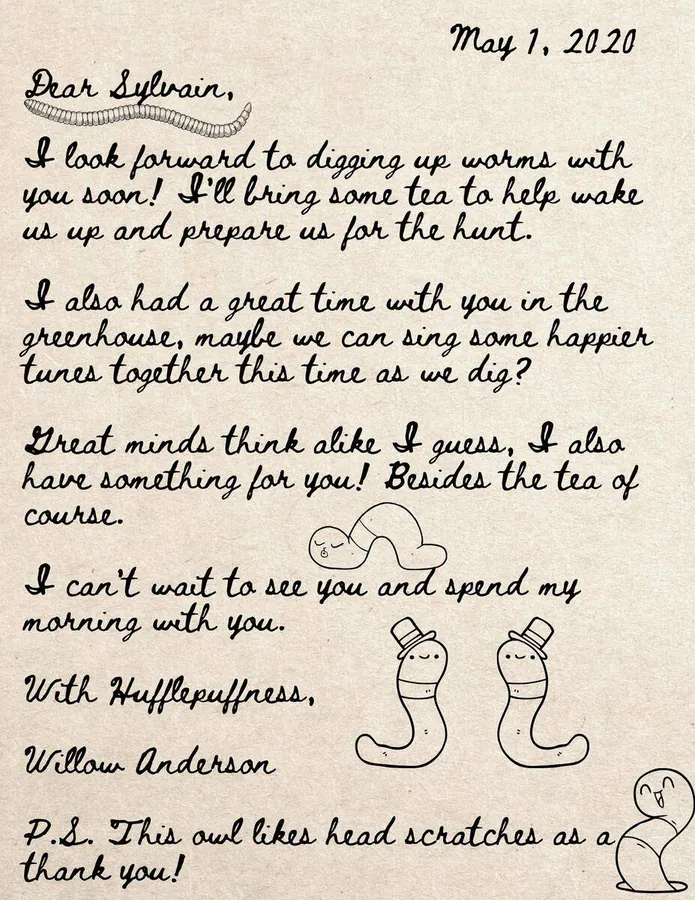 May 1, 2020
Dear Sylvain,
I look forward to digging up worms with
you soon! I'll bring some tea to help wake
us up and prepare us for the hunt.
I also had a great time with you in the
greenhouse, maybe we can sing some happier
tunes together this time as we dig?
Great minds think alike I guess, I also
have something for you! Besides the tea of
course.
I can't wait to see you and spend my
morning with you.
With Hufflepuffness,
Willow Anderson
P.S. This owl likes head scratches as a
thank you!